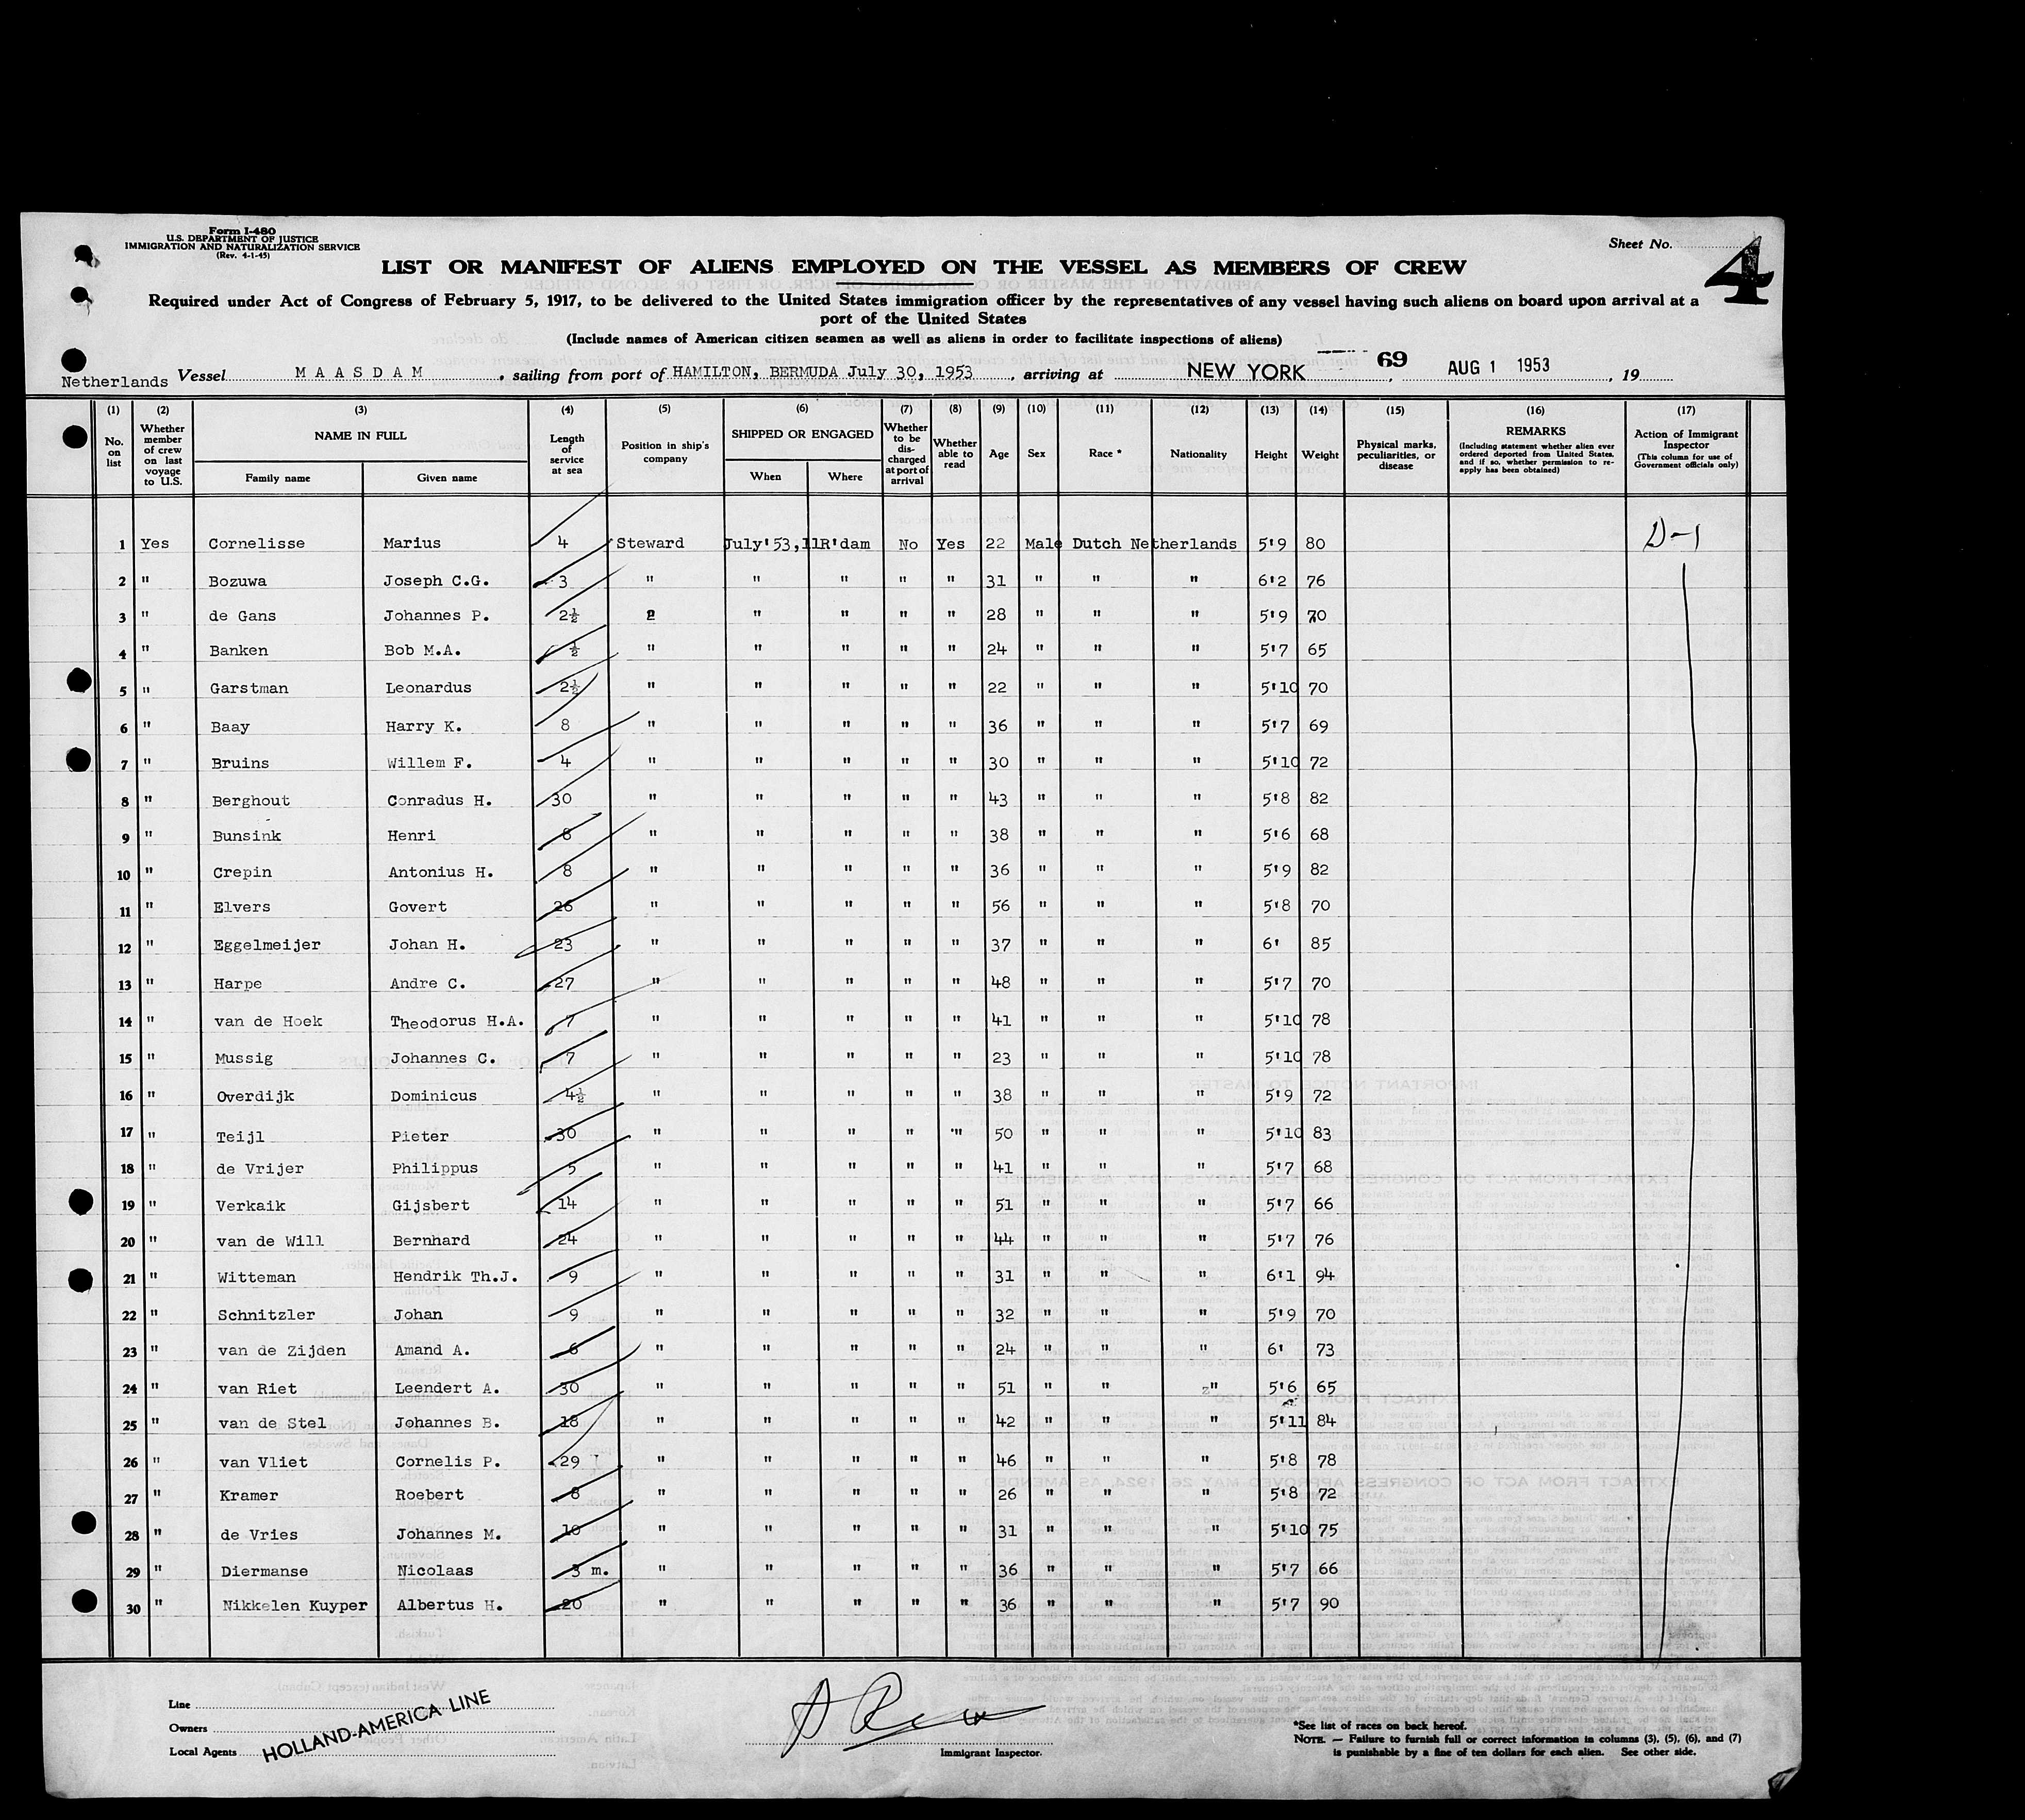 Form I-480
U.S. DEPARTMENT OF JUSTICE
IMMIGRATION AND NATURALIZATION SERVICE
(Rev. 4-1-45)
Sheet No. 4
LIST OR MANIFEST OF ALIENS EMPLOYED ON THE VESSEL AS MEMBERS OF CREW
Required under Act of Congress of February 5, 1917, to be delivered to the United States immigration officer by the representatives of any vessel having such aliens on board upon arrival at a
port of the United States
(Include names of American citizen seamen as well as aliens in order to facilitate inspections of aliens)
69
Netherlands Vessel MAASDAM, sailing from port of HAMILTON, BERMUDA July 30, 1953, arriving at NEW YORK, AUG 1 1953, 19
(1) (2) (3) (4) (5) (6) (7) (8) (9) (10) (11) (12) (13) (14) (15) (16) (17)
No. on list
Whether member of crew on last voyage to U.S.
NAME IN FULL
Family name Given name
Length of service at sea
Position in ship's company
SHIPPED OR ENGAGED
When Where
Whether to be discharged at port of arrival
Whether able to read
Age Sex Race * Nationality Height Weight
Physical marks, peculiarities, or disease
REMARKS
(Including statement whether alien ever ordered deported from United States, and if so, whether permission to reapply has been obtained)
Action of Immigrant Inspector
(This column for use of Government officials only)
1 Yes Cornelisse Marius 4 Steward July'53,11 R'dam No Yes 22 Male Dutch Netherlands 5'9 80 D-1
2 " Bozuwa Joseph C.G. 3 " " " " " 31 " " " 6'2 76
3 " de Gans Johannes P. 2½ " " " " 28 " " " 5'9 70
4 " Banken Bob M.A. ½ " " " " " 24 " " " 5'7 65
5 " Garstman Leonardus 2½ " " " " " 22 " " " 5'10 70
6 " Baay Harry K. 8 " " " " " 36 " " " 5'7 69
7 " Bruins Willem F. 4 " " " " " 30 " " " 5'10 72
8 " Berghout Conradus H. 30 " " " " " 43 " " " 5'8 82
9 " Bunsink Henri 8 " " " " " 38 " " " 5'6 68
10 " Crepin Antonius H. 8 " " " " " 36 " " " 5'9 82
11 " Elvers Govert 26 " " " " " 56 " " " 5'8 70
12 " Eggelmeijer Johan H. 23 " " " " " 37 " " " 6' 85
13 " Harpe Andre C. 27 " " " " " 48 " " " 5'7 70
14 " van de Hoek Theodorus H.A. 7 " " " " " 41 " " " 5'10 78
15 " Mussig Johannes C. 7 " " " " " 23 " " " 5'10 78
16 " Overdijk Dominicus 4½ " " " " " 38 " " " 5'9 72
17 " Teijl Pieter 30 " " " " " 50 " " " 5'10 83
18 " de Vrijer Philippus 5 " " " " " 41 " " " 5'7 68
19 " Verkaik Gijsbert 14 " " " " " 51 " " " 5'7 66
20 " van de Will Bernhard 24 " " " " " 44 " " " 5'7 76
21 " Witteman Hendrik Th.J. 9 " " " " " 31 " " " 6'1 94
22 " Schnitzler Johan 9 " " " " " 32 " " " 5'9 70
23 " van de Zijden Amand A. 6 " " " " " 24 " " " 6' 73
24 " van Riet Leendert A. 30 " " " " " 51 " " " 5'6 65
25 " van de Stel Johannes B. 18 " " " " " 42 " " " 5'11 84
26 " van Vliet Cornelis P. 29 " " " " " 46 " " " 5'8 78
27 " Kramer Roebert 8 " " " " " 26 " " " 5'8 72
28 " de Vries Johannes M. 10 " " " " " 31 " " " 5'10 75
29 " Diermanse Nicolaas 3 m. " " " " " 36 " " " 5'7 66
30 " Nikkelen Kuyper Albertus H. 20 " " " " " 36 " " " 5'7 90
Line
Owners
Local Agents
HOLLAND-AMERICA LINE
Immigrant Inspector.
*See list of races on back hereof.
NOTE. — Failure to furnish full or correct information in columns (3), (5), (6), and (7)
is punishable by a fine of ten dollars for each alien. See other side.